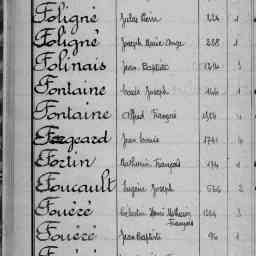 Foligné Jules Pierre 224 1
Foligné Joseph Marie Ange 288 1
Folinais Jean Baptiste 3
Fontaine Louis Joseph 146 1
Fontaine Alfred François 4
Forgeard Jean Louis 1741 4
Fortin Mathurin François 134 1
Foucault Eugène Joseph 566 2
Fouéré Célestin Henri Mathurin 3
François
Fouéré Jean Baptiste 96 1